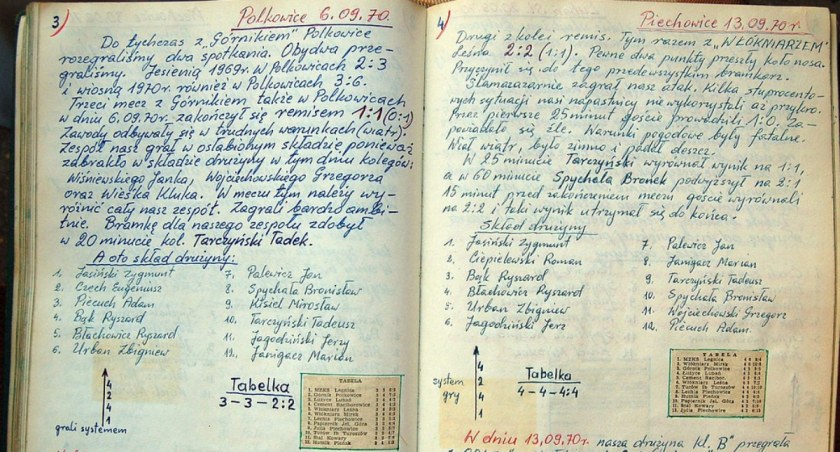 3) Polkowice 6.09.70.
Do tychczas z „Górnikiem" Polkowice
rozegraliśmy dwa spotkania. Obydwa prze-
graliśmy. Jesienią 1969r. w Polkowicach 2:3
i wiosną 1970r. również w Polkowicach 3:6.
Trzeci mecz z Górnikiem także w Polkowicach
w dniu 6.09.70r. zakończył się remisem 1:1 (0:1)
Zawody odbywały się w trudnych warunkach (wiatr).
Zespół nasz grał w osłabionym składzie ponieważ
zabrakło w składzie drużyny w tym dniu kolegów:
Wiśniewskiego Janka, Wojciechowskiego Grzegorza
oraz Wieśka Kluka. W meczu tym należy wy-
różnić cały nasz zespół. Zagrali bardzo ambi-
tnie. Bramkę dla naszego zespołu zdobył
w 20 minucie kol. Tarczyński Tadek.
A oto skład drużyny:
1. Jasiński Zygmunt
2. Czech Eugeniusz
3. Piecuch Adam
4. Bąk Ryszard
5. Błachowicz Ryszard
6. Urban Zbigniew
7. Palewicz Jan
8. Spychała Bronisław
9. Kisiel Mirosław
10. Tarczyński Tadeusz
11. Jagodziński Jerzy
12. Janigacz Marian
4
2
4
1
grali systemem
Tabelka
3-3-2:2
TABELA
1. MZKS Legnica
4) Piechowice 13.09.70r.
Drugi z kolei remis. Tym razem z „WŁÓKNIARZEM"
Leśna 2:2 (1:1). Pewne dwa punkty przeszły koło nosa.
Przyczynił się do tego przedewszystkim bramkarz.
Slamazarnie zagrał nasz atak. Kilka stuprocento-
wych sytuacji nasi napastnicy niewykorzystali aż przykro.
Przez pierwsze 25 minut goście prowadzili 1:0. Za-
powiadało się źle. Warunki pogodowe były fatalne.
Wiał wiatr, było zimno i padał deszcz.
W 25 minucie Tarczyński wyrównał wynik na 1:1,
a w 60 minucie Spychała Bronek podwyższył na 2:1
15 minut przed zakończeniem meczu goście wyrównali
na 2:2 i taki wynik utrzymał się do końca.
Skład drużyny
1. Jasiński Zygmunt
2. Ciepielowski Roman
3. Bąk Ryszard
4. Błachowicz Ryszard
5. Urban Zbigniew
6. Jagodziński Jerz
7. Palewicz Jan
8. Janigacz Marian
9. Tarczyński Tadeusz
10. Spychała Bronisław
11. Wojciechowski Grzegorz
12. Piecuch Adam.
system
gry
4
2
4
1
Tabelka
4-4-4:4
TABELA
1. MZKS Legnica
W dniu 13.09.70r. nasza drużyna kl. B" przegrała